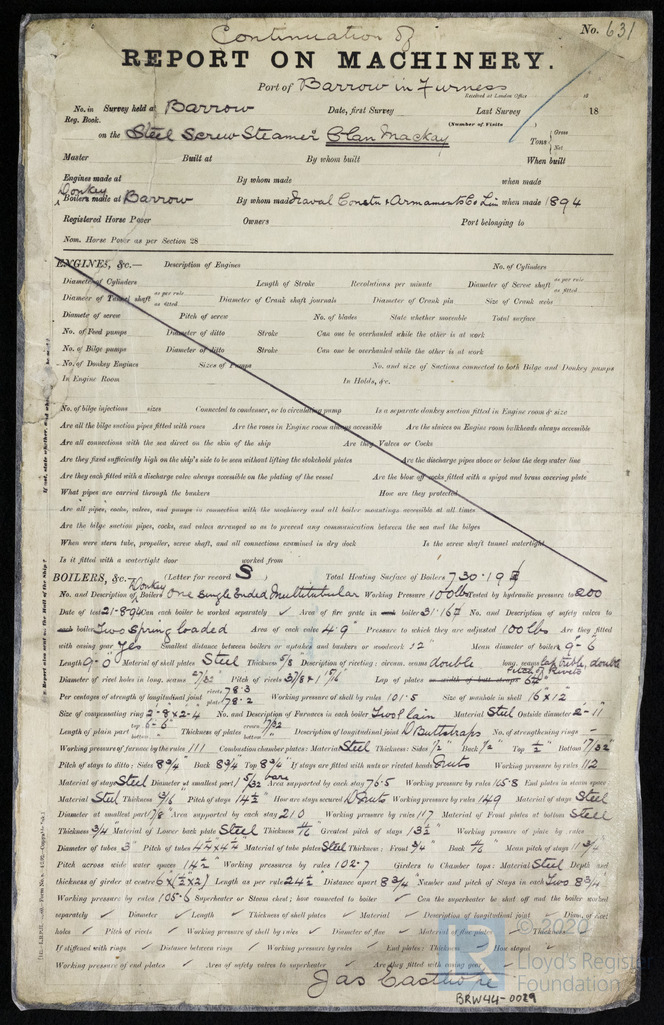 Continuation of
No. 631
REPORT ON MACHINERY.
Port of Barrow in Furness
Received at London Office
No. in Survey held at Barrow Date, first Survey Last Survey 18
Reg. Book. (Number of Visits
on the Steel Screw Steamer Clan Mackay Tons { Gross Net
Master Built at By whom built When built
Engines made at By whom made when made
Donkey Boilers made at Barrow By whom made Naval Constn & Armaments Co Lim when made 1894
Registered Horse Power Owners Port belonging to
Nom. Horse Power as per Section 28
ENGINES, &c.— Description of Engines No. of Cylinders
Diameter of Cylinders Length of Stroke Revolutions per minute Diameter of Screw shaft as per rule as fitted
Diameter of Tunnel shaft as per rule as fitted Diameter of Crank shaft journals Diameter of Crank pin Size of Crank webs
Diameter of screw Pitch of screw No. of blades State whether moveable Total surface
No. of Feed pumps Diameter of ditto Stroke Can one be overhauled while the other is at work
No. of Bilge pumps Diameter of ditto Stroke Can one be overhauled while the other is at work
No. of Donkey Engines Sizes of Pumps No. and size of Suctions connected to both Bilge and Donkey pumps
In Engine Room In Holds, &c.
No. of bilge injections sizes Connected to condenser, or to circulating pump Is a separate donkey suction fitted in Engine room & size
Are all the bilge suction pipes fitted with roses Are the roses in Engine room always accessible Are the sluices on Engine room bulkheads always accessible
Are all connections with the sea direct on the skin of the ship Are they Valves or Cocks
Are they fixed sufficiently high on the ship's side to be seen without lifting the stokehold plates Are the discharge pipes above or below the deep water line
Are they each fitted with a discharge valve always accessible on the plating of the vessel Are the blow off cocks fitted with a spigot and brass covering plate
What pipes are carried through the bunkers How are they protected
Are all pipes, cocks, valves, and pumps in connection with the machinery and all boiler mountings accessible at all times
Are the bilge suction pipes, cocks, and valves arranged so as to prevent any communication between the sea and the bilges
When were stern tube, propeller, screw shaft, and all connections examined in dry dock Is the screw shaft tunnel watertight
Is it fitted with a watertight door worked from
BOILERS, &c. (Letter for record S) Total Heating Surface of Boilers 730.19
No. and Description of Donkey Boilers One Single Ended Multitubular Working Pressure 100 lbs Tested by hydraulic pressure to 200
Date of test 21-8-94 Can each boiler be worked separately ✓ Area of fire grate in boiler 31.16 No. and Description of safety valves to
boiler Two Spring loaded Area of each valve 4.9" Pressure to which they are adjusted 100 lbs Are they fitted
with easing gear Yes Smallest distance between boilers or uptakes and bunkers or woodwork 12" Mean diameter of boilers 9-6
Length 9-0" Material of shell plates Steel Thickness 5/8 Description of riveting: circum. seams double long. seams lap treble, double
Diameter of rivet holes in long. seams 27/32 Pitch of rivets Lap of plates
Per centages of strength of longitudinal joint rivets 78.3 plate 78.2 Working pressure of shell by rules 101.5 Size of manhole in shell 16" x 12"
Size of compensating ring 2-8 x 2-4 No. and Description of Furnaces in each boiler Two Plain Material Steel Outside diameter 2-11"
Length of plain part top bottom Thickness of plates crown bottom Description of longitudinal joint D Buttstraps No. of strengthening rings -
Working pressure of furnace by the rules 111 Combustion chamber plates: Material Steel Thickness: Sides 1/2" Back 1/2" Top 1/2" Bottom 17/32"
Pitch of stays to ditto: Sides 8 3/4" Back 8 3/4 Top 8 3/4" If stays are fitted with nuts or riveted heads Nuts Working pressure by rules 112
Material of stays Steel Diameter at smallest part 1 5/32 bare Area supported by each stay 76.5 Working pressure by rules 105.8 End plates in steam space:
Material Steel Thickness Pitch of stays 14 1/2" How are stays secured D Nuts Working pressure by rules 149 Material of stays Steel
Diameter at smallest part 1 7/8" Area supported by each stay 210 Working pressure by rules 117 Material of Front plates at bottom Steel
Thickness 3/4 Material of Lower back plate Steel Thickness Greatest pitch of stays 13 1/2" Working pressure of plate by rules
Diameter of tubes 3" Pitch of tubes Material of tube plates Steel Thickness: Front 3/4" Back Mean pitch of stays
Pitch across wide water spaces 14 1/2" Working pressures by rules 102.7 Girders to Chamber tops: Material Steel Depth and
thickness of girder at centre 6 x (1/2 x 2) Length as per rule 24 1/2" Distance apart 8 3/4" Number and pitch of Stays in each Two 8 3/4"
Working pressure by rules 105.6 Superheater or Steam chest; how connected to boiler ✓ Can the superheater be shut off and the boiler worked
separately ✓ Diameter ✓ Length ✓ Thickness of shell plates ✓ Material ✓ Description of longitudinal joint ✓ Diam. of rivet
holes ✓ Pitch of rivets ✓ Working pressure of shell by rules ✓ Diameter of flue ✓ Material of flue plates ✓ Thickness ✓
If stiffened with rings ✓ Distance between rings ✓ Working pressure by rules ✓ End plates: Thickness ✓ How stayed ✓
Working pressure of end plates ✓ Area of safety valves to superheater ✓ Are they fitted with easing gear ✓
Jas Easthope
BRW44-0029
© 2020
Lloyd's Register
Foundation